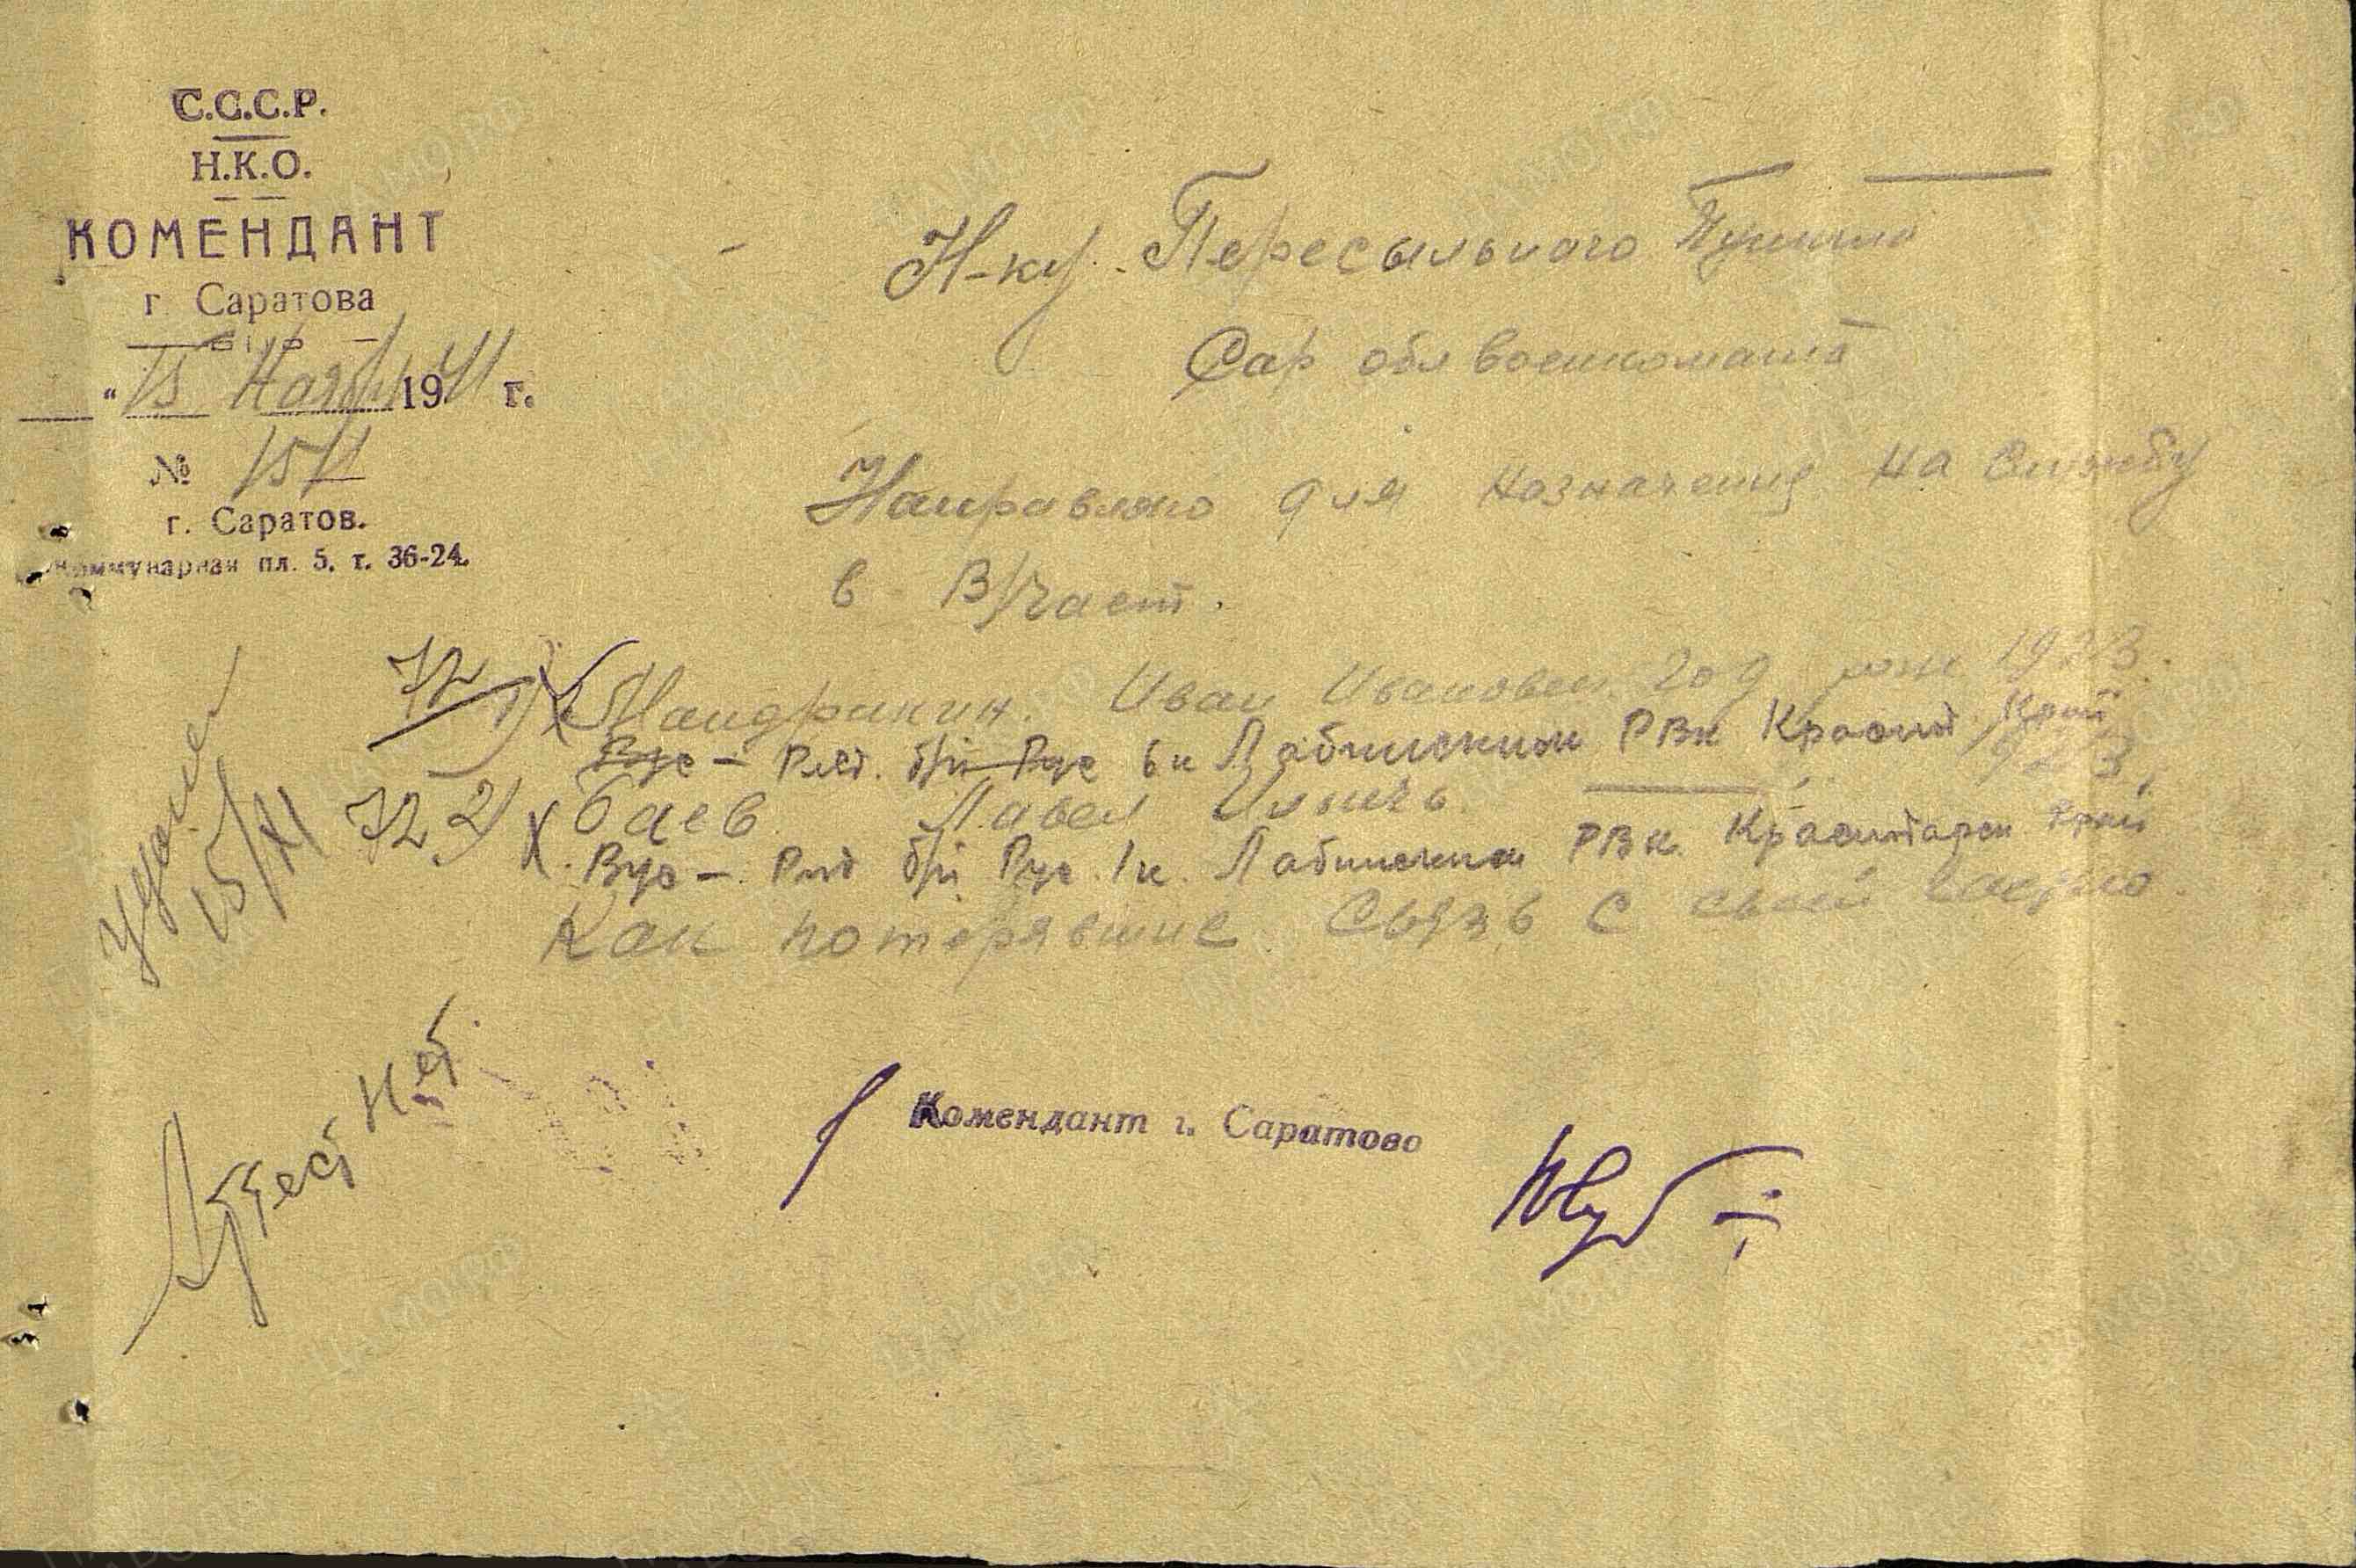 С.С.С.Р.
Н.К.О.
КОМЕНДАНТ
г. Саратова
"15" Ноября 1941 г.
№
г. Саратов.
Коммунарная пл. 5, т. 36-24.
Н-ку Пересыльного Пункта
Сар обл военкомата
Направляю для назначения на службу
в В/част.
72 1) Мандрикин Иван Иванович год рож 1923.
Вус — Ряд. б/п Рус 6 к Лабинским РВк Красно Край
72 2) Баев Павел Ильичь — 1923
Вус — Ряд б/п Рус 1 к. Лабинским РВк Краснодарск край
Как потерявшие связь с своей частью
15/XI
Аттест нет
Комендант г. Саратова